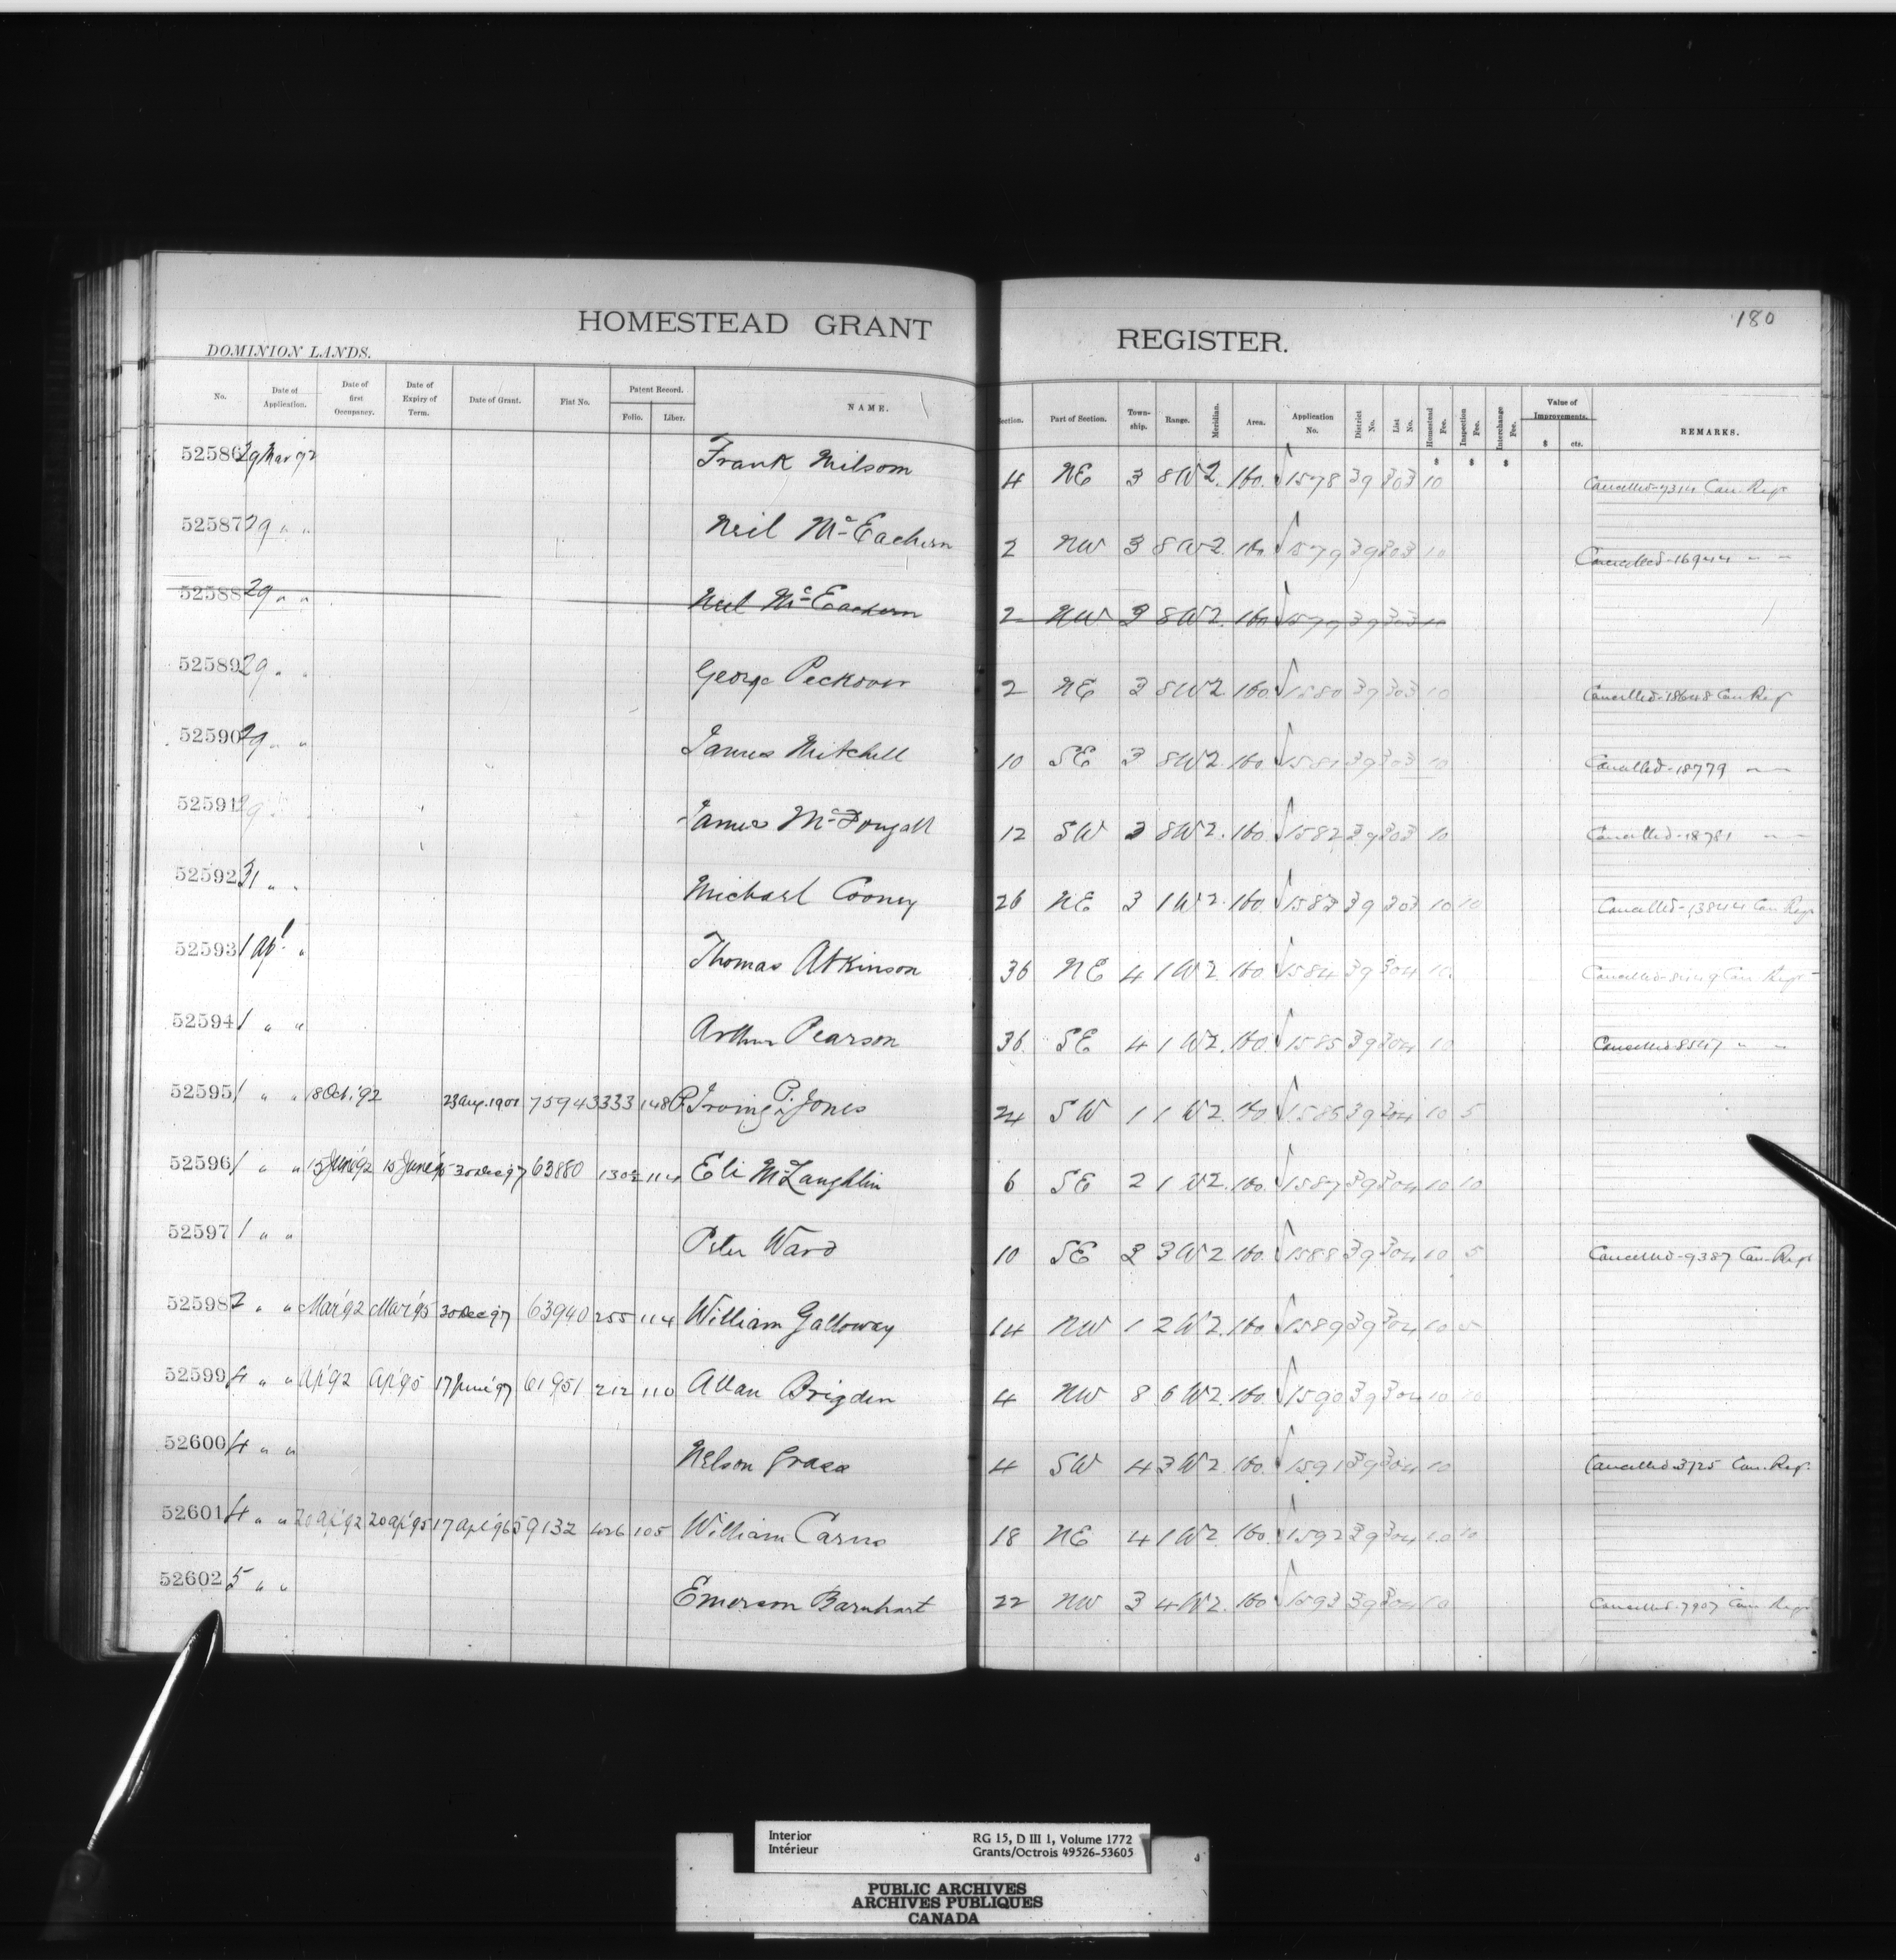 180
HOMESTEAD GRANT REGISTER.
DOMINION LANDS.
No. Date of Application. Date of first Occupancy. Date of Expiry of Term. Date of Grant. Fiat No. Patent Record. Folio. Liber. NAME. Section. Part of Section. Town-ship. Range. Meridian. Area. Application No. District No. List No. Homestead Fee. Inspection Fee. Interchange Fee. Value of Improvements. $ cts. REMARKS.
$ $ $
52586 29 Mar '92 Frank Milsom 4 NE 3 8 W2. 160. 1578 39 303 10 Cancelled Can. Regr
52587 29 " " Neil McEachern 2 NW 3 8 W2. 160. 1579 39 303 10 Cancelled-16944 " "
52588 29 " " Neil McEachern 2 NW 3 8 W2. 160 1579 39 303 10
52589 29 " " George Peckover 2 NE 3 8 W2. 160 1580 39 303 10 Cancelled-18648 Can. Regr
52590 29 " " James Mitchell 10 SE 3 8 W2. 160 1581 39 303 10 Cancelled-18779 " "
52591 29 " " James McDougall 12 SW 3 8 W2. 160 1582 39 303 10 Cancelled-18781 " "
52592 31 " " Michael Cooney 26 NE 3 1 W2. 160. 1583 39 303 10 10 Cancelled-13844 Can. Regr
52593 1 Apl. " Thomas Atkinson 36 NE 4 1 W2. 160 1584 39 304 10. Cancelled Can. Regr
52594 1 " " Arthur Pearson 36 SE 4 1 W2. 160. 1585 39 304 10 Cancelled " "
52595 1 " " 18 Oct. '92 23 Aug. 1901 75943 333 148 Irving P. Jones 24 SW 1 1 W2. 160. 1586 39 304 10 5
52596 1 " " 15 June '92 15 June '95 30 Dec 97 63880 114 Eli McLaughlin 6 SE 2 1 W2. 160. 1587 39 304 10 10
52597 1 " " Peter Ward 10 SE 3 W2. 160. 1588 39 304 10 5 Cancelled-9387 Can. Regr
52598 2 " " Mar '92 Mar '95 30 Dec 97 63940 255 114 William Galloway 14 NW 1 2 W2. 160. 1589 39 304 10 5
52599 4 " " Ap '92 Ap '95 17 June '97 61951 212 110 Allan Brigden 4 NW 8 6 W2. 160. 1590 39 304 10 10
52600 4 " " Nelson 4 SW 4 3 W2. 160. 1591 39 304 10 Cancelled-3725 Can. Regr.
52601 4 " " 20 Ap '92 20 Ap '95 17 Apl '96 59132 426 105 William Carns 18 NE 4 1 W2. 160. 1592 39 304 10 10
52602 5 " " Emerson Barnhart 22 NW 3 4 W2. 160 1593 39 304 10 Cancelled-7907 Can. Regr
Interior RG 15, D III 1, Volume 1772
Intérieur Grants/Octrois 49526-53605
PUBLIC ARCHIVES
ARCHIVES PUBLIQUES
CANADA